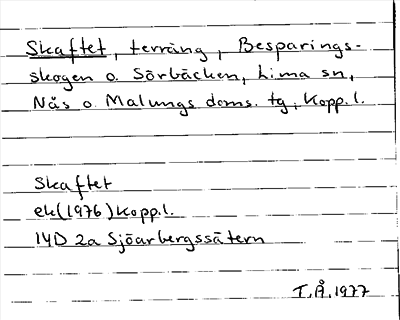 Skaftet, terräng, Besparings-
skogen o. Sörbäcken, Lima sn,
Nås o. Malungs doms. tg, Kopp.l.
Skaftet
ek(1976) Kopp.l.
14D 2a Sjöarbergssätern
T.Å. 1977